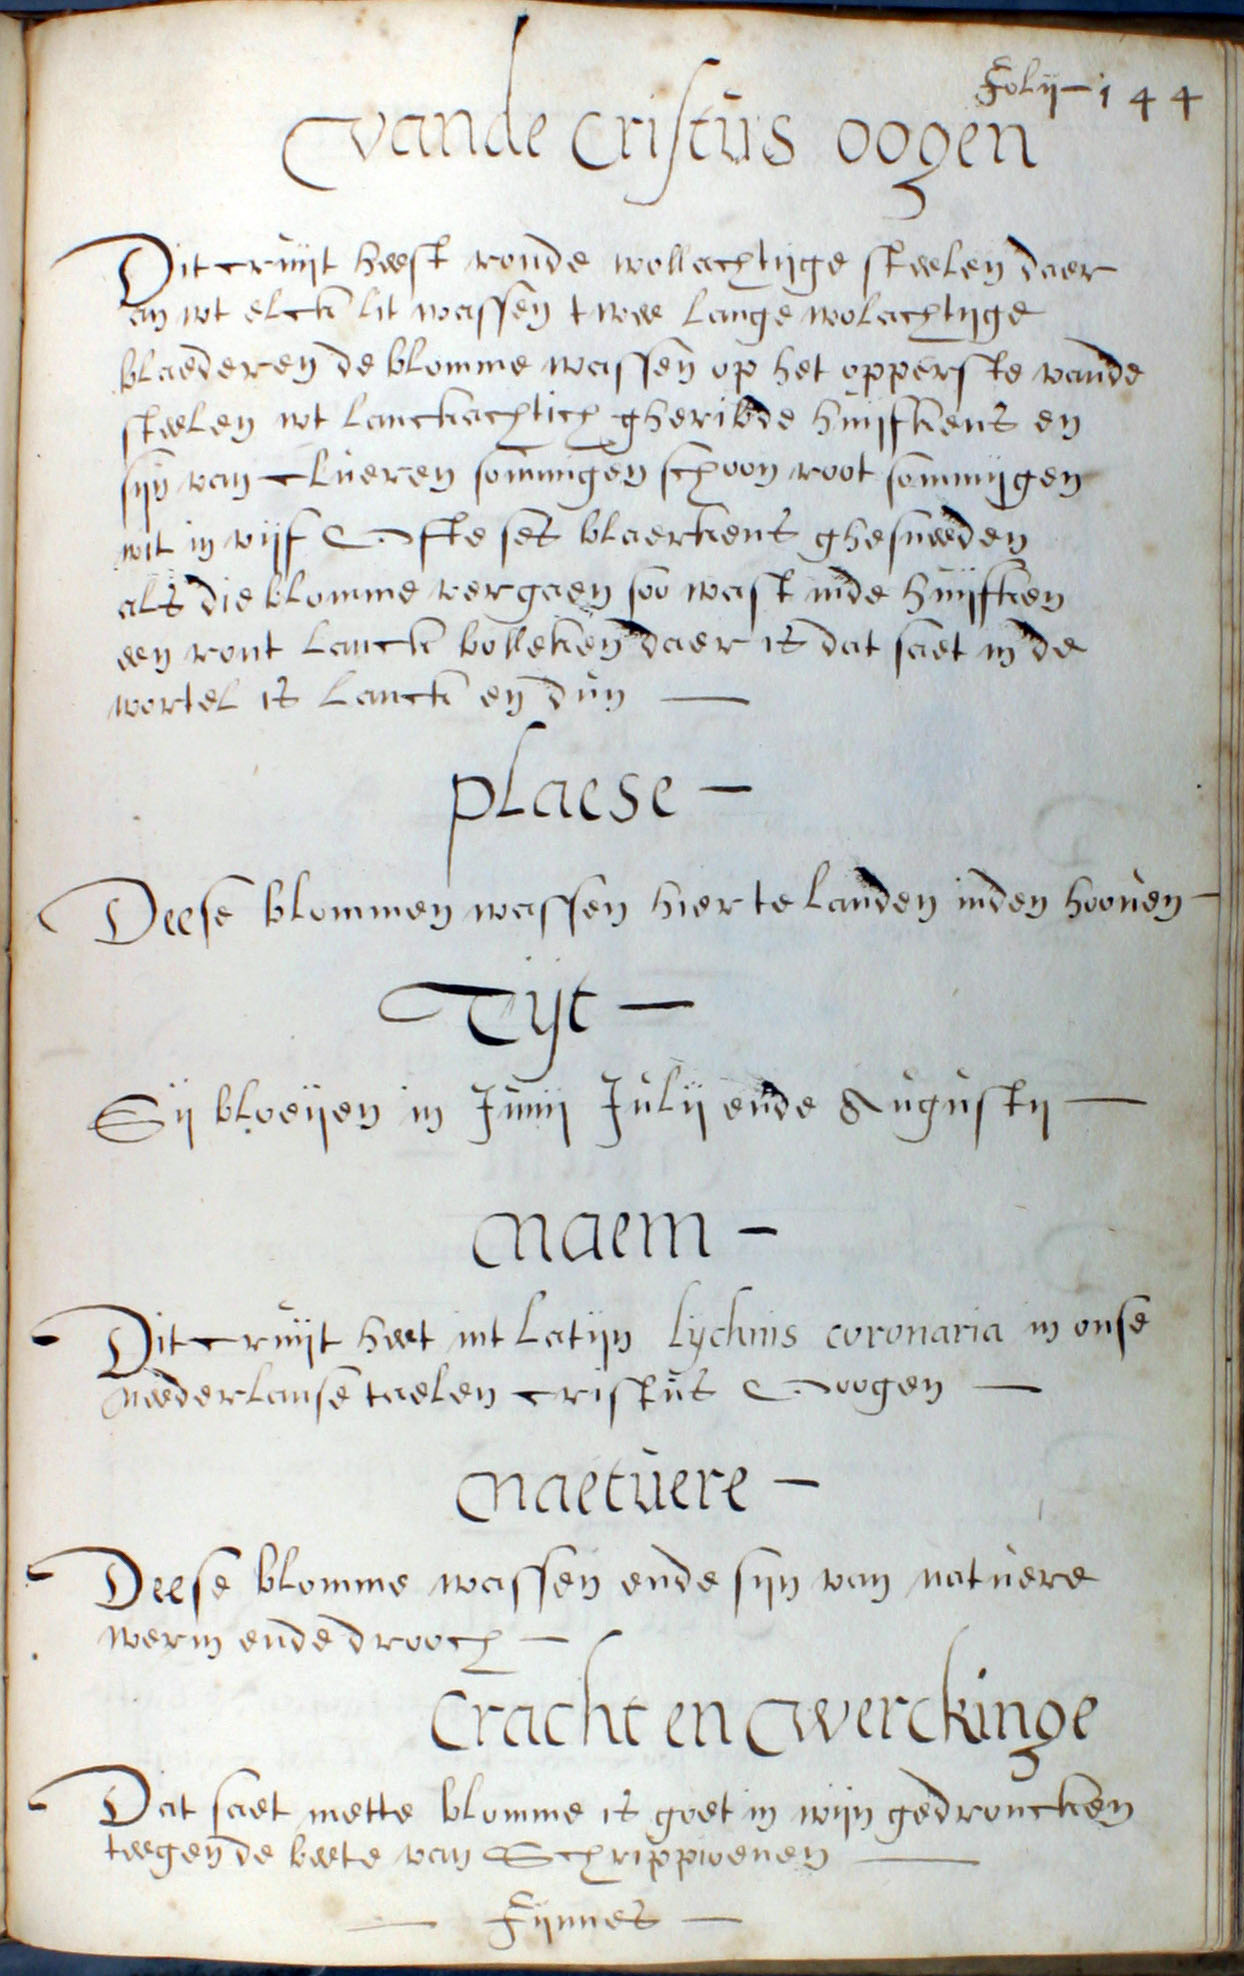 Folij - 144
vande cristus oogen
Dit cruijt heest ronde wollachtijge steelen daer
an wt elck lit wassen twee lange wolachtijge
blaederen de blomme wassen op het opperste vande
steelen wt lanckachtich gheribde huijfkens en
sijn van clueren sommigen schoon root sommijgen
wit in vijf ofte ses blaerkens ghesneeden
als die blomme vergaen soo wast inde huijfken
een ront lanck bolleken daer is dat saet in de
wortel is lanck en dun —
plaese —
Deese blommen wassen hier te landen inden hooven —
Tijt —
Sij bloeijen in Junij Julij ende Augustij —
Naem —
Dit cruijt heet int latijn lychnis coronaria in onse
neederlanse taelen cristus oogen —
Naetuere —
Deese blomme wassen ende sijn van natuere
werm ende drooch —
Cracht en werckinge
Dat saet mette blomme is goet in wijn gedroncken
teegen de beete van Schrippioenen —
— Fijnnes —